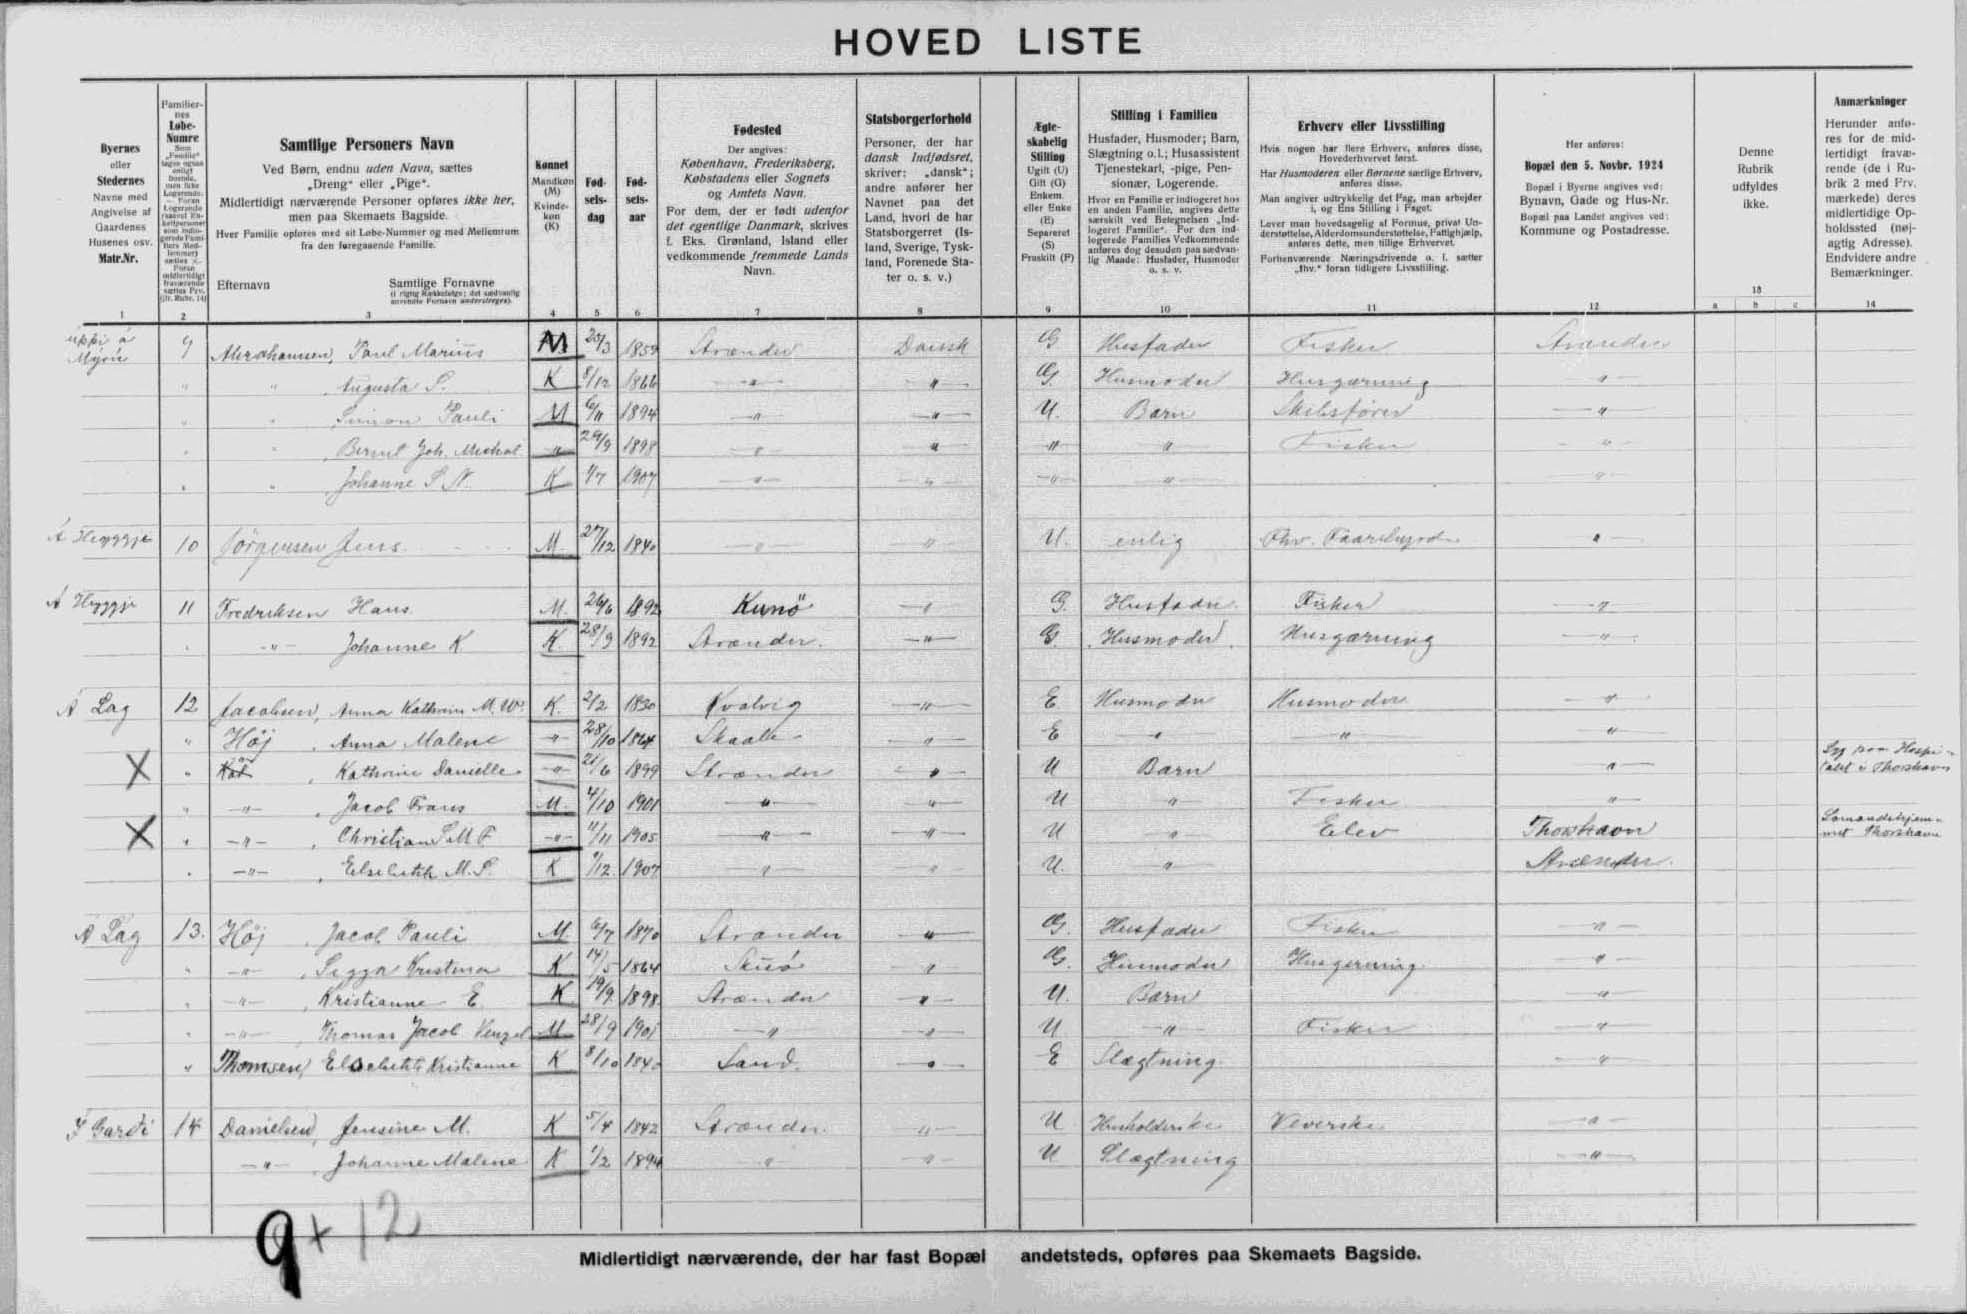 HOVED LISTE
Byernes
eller
Stedernes
Navne med
Angivelse af
Gaardenes
Husenes osv.
Matr.Nr.
1
Familier-
nes
Løbe-
Numre
2
Samtlige Personers Navn
Ved Børn, endnu uden Navn, sættes
„Dreng“ eller „Pige“.
Midlertidigt nærværende Personer opføres ikke her,
men paa Skemaets Bagside.
Hver Familie opføres med sit Løbe-Nummer og med Mellemrum
fra den foregaaende Familie.
Efternavn Samtlige Fornavne
(i rigtig Rækkefølge; det sædvanlig
anvendte Fornavn understreges).
3
Kønnet
Mandkøn
(M)
Kvinde-
køn
(K)
4
Fød-
sels-
dag
5
Fød-
sels-
aar
6
Fødested
Der angives:
København, Frederiksberg,
Købstadens eller Sognets
og Amtets Navn.
For dem, der er født udenfor
det egentlige Danmark, skrives
f. Eks. Grønland, Island eller
vedkommende fremmede Lands
Navn.
7
Statsborgerforhold
Personer, der har
dansk Indfødsret,
skriver: „dansk“;
andre anfører her
Navnet paa det
Land, hvori de har
Statsborgerret (Is-
land, Sverige, Tysk-
land, Forenede Sta-
ter o. s. v.)
8
Ægte-
skabelig
Stilling
Ugift (U)
Gift (G)
Enkem.
eller Enke
(E)
Separeret
(S)
Fraskilt (F)
9
Stilling i Familien
Husfader, Husmoder; Barn,
Slægtning o.l.; Husassistent
Tjenestekarl, -pige, Pen-
sionær, Logerende.
Hvor en Familie er indlogeret hos
en anden Familie, angives dette
særskilt ved Betegnelsen „Ind-
logeret Familie“. For den ind-
logerede Families Vedkommende
anføres dog desuden paa sædvan-
lig Maade: Husfader, Husmoder
o. s. v.
10
Erhverv eller Livsstilling
Hvis nogen har flere Erhverv, anføres disse,
Hovederhvervet først.
Har Husmoderen eller Børnene særlige Erhverv,
anføres disse.
Man angiver udtrykkelig det Fag, man arbejder
i, og Ens Stilling i Faget.
Lever man hovedsagelig af Formue, privat Un-
derstøttelse, Alderdomsunderstøttelse, Fattighjælp,
anføres dette, men tillige Erhvervet.
Forhenværende Næringsdrivende o. l. sætter
„fhv.“ foran tidligere Livsstilling.
11
Her anføres:
Bopæl den 5. Novbr. 1924
Bopæl i Byerne angives ved:
Bynavn, Gade og Hus-Nr.
Bopæl paa Landet angives ved:
Kommune og Postadresse.
12
Denne
Rubrik
udfyldes
ikke.
13
a b c
Anmærkninger
Herunder anfø-
res for de mid-
lertidigt fravæ-
rende (de i Ru-
brik 2 med Frv.
mærkede) deres
midlertidige Op-
holdssted (nøj-
agtig Adresse).
Endvidere andre
Bemærkninger.
14
uppi á Mýrú 9 Abrahamsen, Poul Marius M 25/3 1859 Strænder Dansk G Husfader Fisker Strænder
" " Augusta S. K 8/12 1866 " " G. Husmoder Husgærning "
" " Simon Pauli M 6/11 1894 " " U. Barn Skibsfører "
" " Bernt Joh. Michal " 29/9 1898 " " " " Fisker "
" " Johanne S.N. K 1/7 1907 " " " " "
Á Heyggje 10 Jörgensen Jens M. 27/12 1840 " " U. enlig Fhv. Faarehyrde "
Á Heyggje 11 Fredriksen Hans M. 26/6 1892 Kunö " G. Husfader Fisker "
" " Johanne K. K. 28/9 1892 Strænder. " G. Husmoder Husgærning "
Á Lag 12 Jacobsen, Anna Kathrine M.W. K. 2/2 1830 Kvalvig " E Husmoder Husmoder "
" Höj, Anna Malene " 28/10 1864 Skaale " E " " "
X " Kathrine Danielle " 21/6 1899 Strænder " U Barn " Syg paa Hospi-
talet i Thorshavn
" " , Jacob Frans M. 4/10 1901 " " U " Fisker "
X " " , Christian S.M.F. " 11/11 1905 " " U " Elev Thorshavn Sømandshjem-
met Thorshavn
" " , Elsebeth M.S. K 1/12 1907 " " U. " Strænder.
Á Lag 13. Höj, Jacob Pauli M. 6/7 1870 Strænder " G. Husfader Fisker "
" " , Sigga Kristina K 14/5 1864 Skúö " G. Husmoder Husgerning "
" " , Kristianne E. K 19/9 1898 Strænder " U. Barn "
" " , Thomas Jacob Venzel M 28/9 1901 " " U " Fisker "
" Thomsen, Elsebeth Kristianne K 8/10 1840 Sand " E Slægtning "
Í Garði 14 Danielsen, Jensine M. K 5/4 1842 Strænder. " U Husholderske Væverske "
" , Johanne Malene K 1/2 1894 " " U Slægtning "
9 + 12
Midlertidigt nærværende, der har fast Bopæl andetsteds, opføres paa Skemaets Bagside.